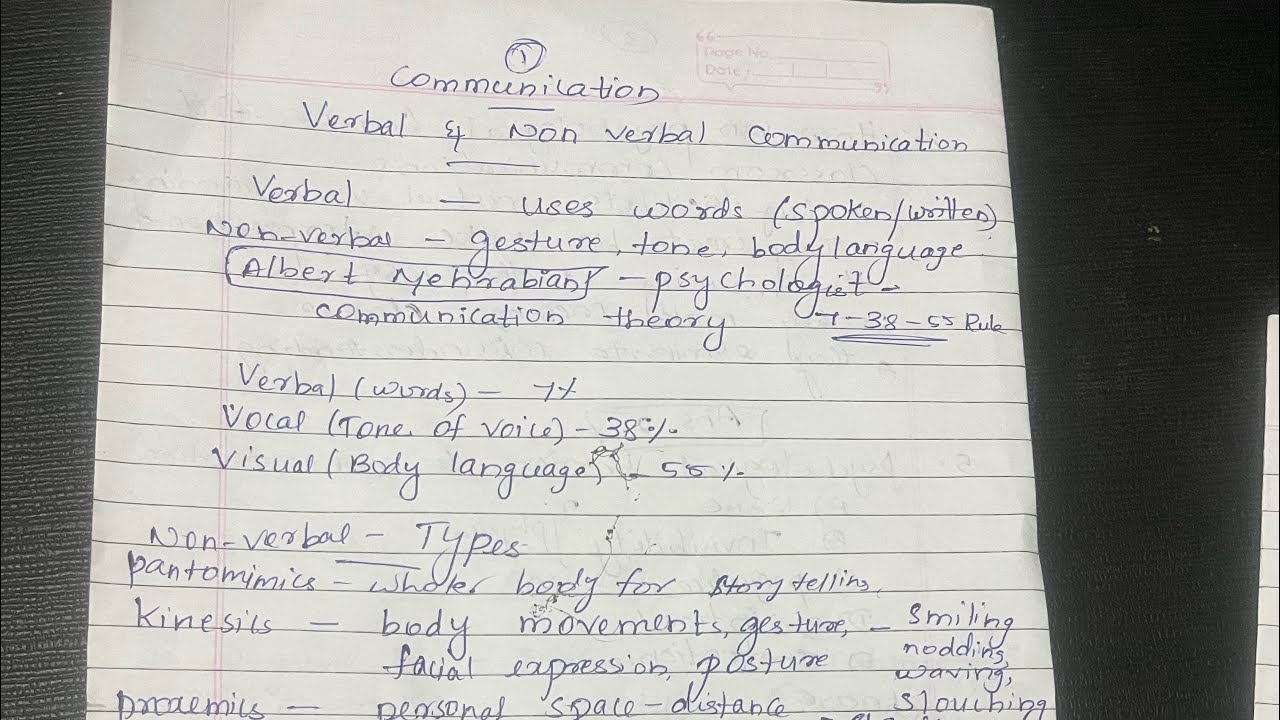 ①
Communication
Page No.
Date :
Verbal & Non verbal Communication
Verbal — uses words (spoken/written)
Non-verbal — gesture, tone, body language
Albert Mehrabian — psychologist —
communication theory 7-38-55 Rule
Verbal (words) — 7%
Vocal (Tone of voice) - 38%.
Visual (Body language) - 55%
Non-verbal - Types
pantomimics — whole body for story telling,
Kinesics — body movements, gesture, — smiling
facial expression, posture nodding,
waving,
proxemics — personal space-distance slouching